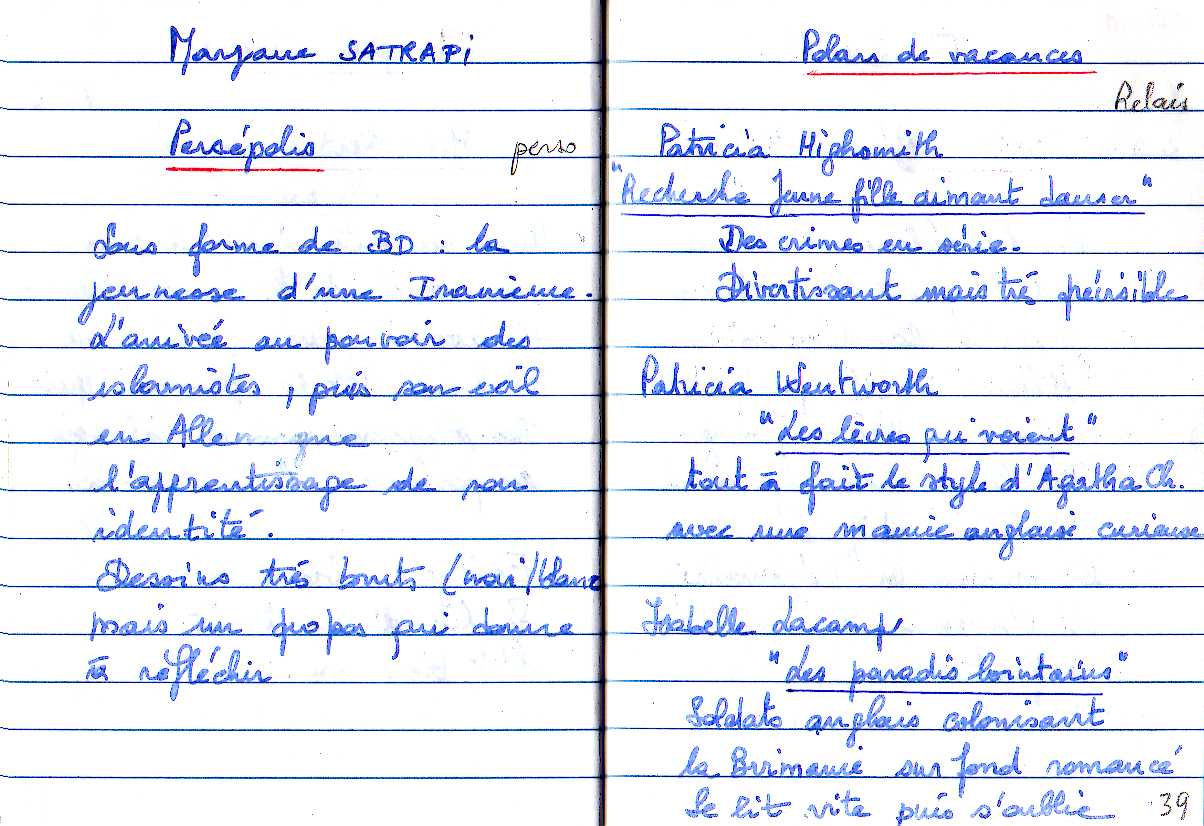 Marjane SATRAPI
Persépolis perso
Sous forme de BD : la
jeunesse d'une Iranienne.
L'arrivée au pouvoir des
islamistes, puis son exil
en Allemagne
l'apprentissage de son
identité.
Dessins très bruts (noir/blanc
mais un propos qui donne
à réfléchir
Polars de vacances
Relais
Patricia Highsmith
"Recherche Jeune fille aimant danser"
Des crimes en série.
Divertissant mais très prévisible
Patricia Wentworth
"Les lèvres qui voient"
tout à fait le style d'Agatha Ch.
avec une mamie anglaise curieuse
Isabelle Lacamp
"Les paradis lointains"
Soldats anglais colonisant
la Birmanie sur fond romancé
Se lit vite puis s'oublie
39